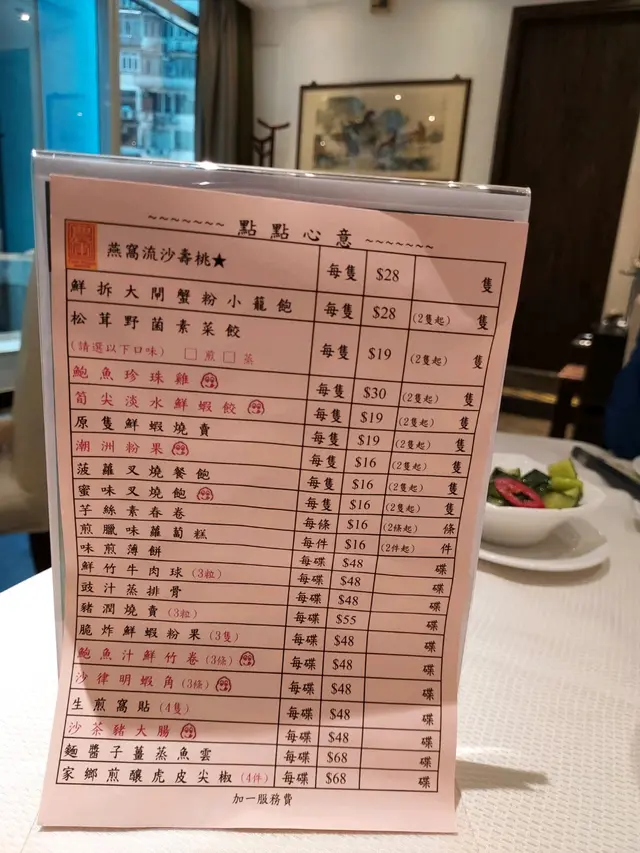 ~~~~~~~ 點點心意 ~~~~~~~
燕窩流沙壽桃★ 每隻 $28 隻
鮮拆大閘蟹粉小籠飽 每隻 $28 (2隻起) 隻
松茸野菌素菜餃 每隻 $19 (2隻起) 隻
(請選以下口味) □煎□蒸
鮑魚珍珠雞 每隻 $30 (2隻起) 隻
筍尖淡水鮮蝦餃 每隻 $19 (2隻起) 隻
原隻鮮蝦燒賣 每隻 $19 (2隻起) 隻
潮洲粉果 每隻 $16 (2隻起) 隻
菠蘿叉燒餐飽 每隻 $16 (2隻起) 隻
蜜味叉燒飽 每隻 $16 (2隻起) 隻
芋絲素春卷 每條 $16 (2條起) 條
煎臘味蘿蔔糕 每件 $16 (2件起) 件
味煎薄餅 每碟 $48 碟
鮮竹牛肉球(3粒) 每碟 $48 碟
豉汁蒸排骨 每碟 $48 碟
豬潤燒賣(3粒) 每碟 $55 碟
脆炸鮮蝦粉果(3隻) 每碟 $48 碟
鮑魚汁鮮竹卷(3條) 每碟 $48 碟
沙律明蝦角(3條) 每碟 $48 碟
生煎窩貼(4隻) 每碟 $48 碟
沙茶豬大腸 每碟 $48 碟
麵醬子薑蒸魚雲 每碟 $68 碟
家鄉煎釀虎皮尖椒(4件) 每碟 $68 碟
加一服務費